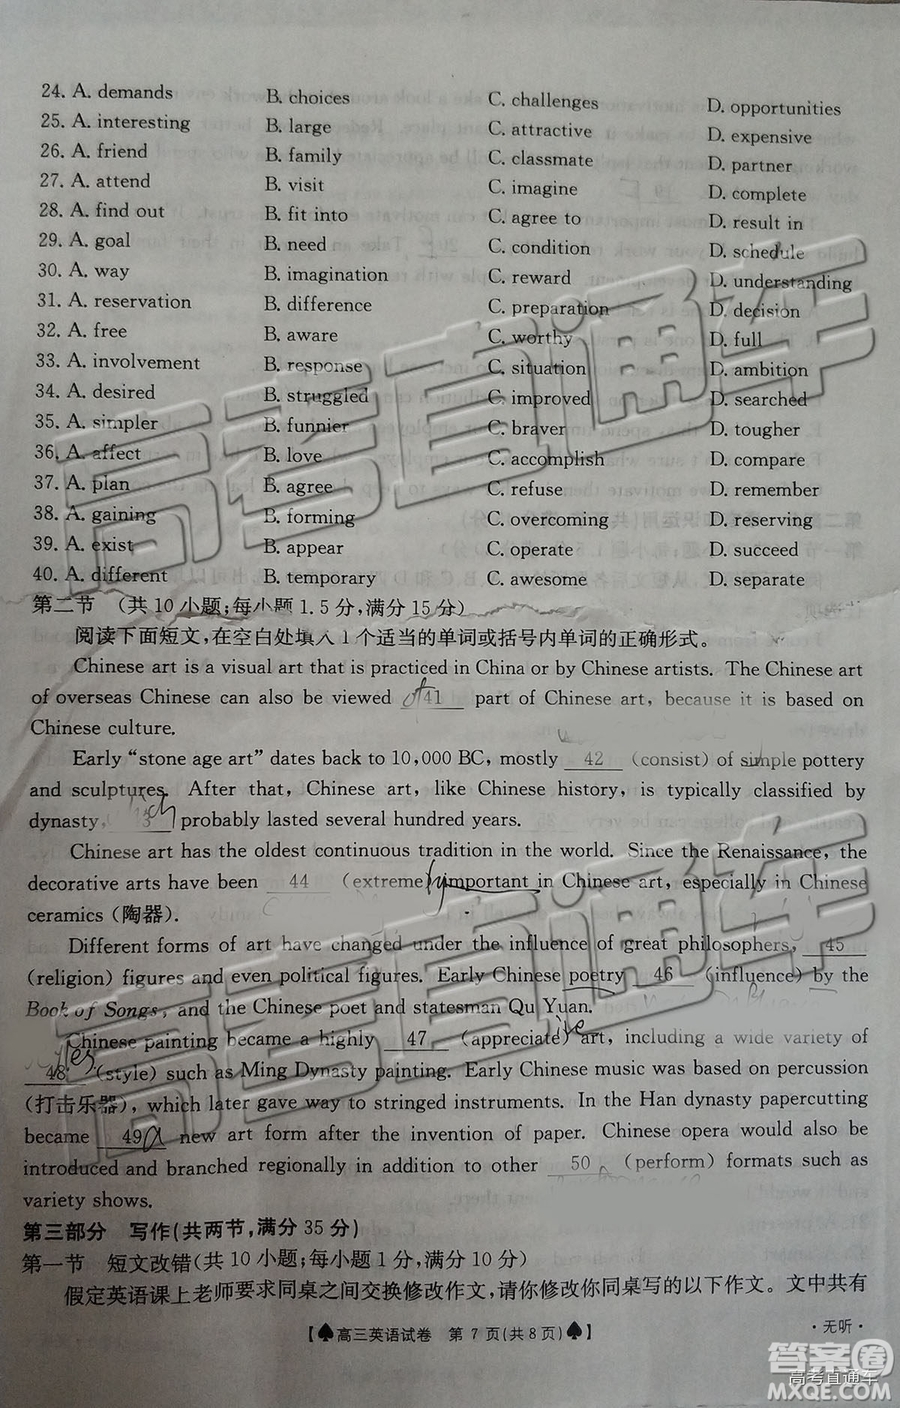 24. A. demands B. choices C. challenges D. opportunities
25. A. interesting B. large C. attractive D. expensive
26. A. friend B. family C. classmate D. partner
27. A. attend B. visit C. imagine D. complete
28. A. find out B. fit into C. agree to D. result in
29. A. goal B. need C. condition D. schedule
30. A. way B. imagination C. reward D. understanding
31. A. reservation B. difference C. preparation D. decision
32. A. free B. aware C. worthy D. full
33. A. involvement B. response C. situation D. ambition
34. A. desired B. struggled C. improved D. searched
35. A. simpler B. funnier C. braver D. tougher
36. A. affect B. love C. accomplish D. compare
37. A. plan B. agree C. refuse D. remember
38. A. gaining B. forming C. overcoming D. reserving
39. A. exist B. appear C. operate D. succeed
40. A. different B. temporary C. awesome D. separate
第二节 (共10小题;每小题1.5分,满分15分)
阅读下面短文,在空白处填入1个适当的单词或括号内单词的正确形式。
Chinese art is a visual art that is practiced in China or by Chinese artists. The Chinese art
of overseas Chinese can also be viewed 41 part of Chinese art, because it is based on
Chinese culture.
Early “stone age art” dates back to 10,000 BC, mostly 42 (consist) of simple pottery
and sculptures. After that, Chinese art, like Chinese history, is typically classified by
dynasty, 3 probably lasted several hundred years.
Chinese art has the oldest continuous tradition in the world. Since the Renaissance, the
decorative arts have been 44 (extreme) important in Chinese art, especially in Chinese
ceramics (陶器).
Different forms of art have changed under the influence of great philosophers, 45
(religion) figures and even political figures. Early Chinese poetry 46 (influence) by the
Book of Songs, and the Chinese poet and statesman Qu Yuan.
Chinese painting became a highly 47 (appreciate) art, including a wide variety of
48 (style) such as Ming Dynasty painting. Early Chinese music was based on percussion
(打击乐器), which later gave way to stringed instruments. In the Han dynasty papercutting
became 49 a new art form after the invention of paper. Chinese opera would also be
introduced and branched regionally in addition to other 50 (perform) formats such as
variety shows.
第三部分 写作(共两节,满分35分)
第一节 短文改错(共10小题;每小题1分,满分10分)
假定英语课上老师要求同桌之间交换修改作文,请你修改你同桌写的以下作文。文中共有
【♠高三英语试卷 第7页(共8页)♠】 ·无听·
高考直通车
高考直通车
答案圈
高考直通车
MXQE.COM